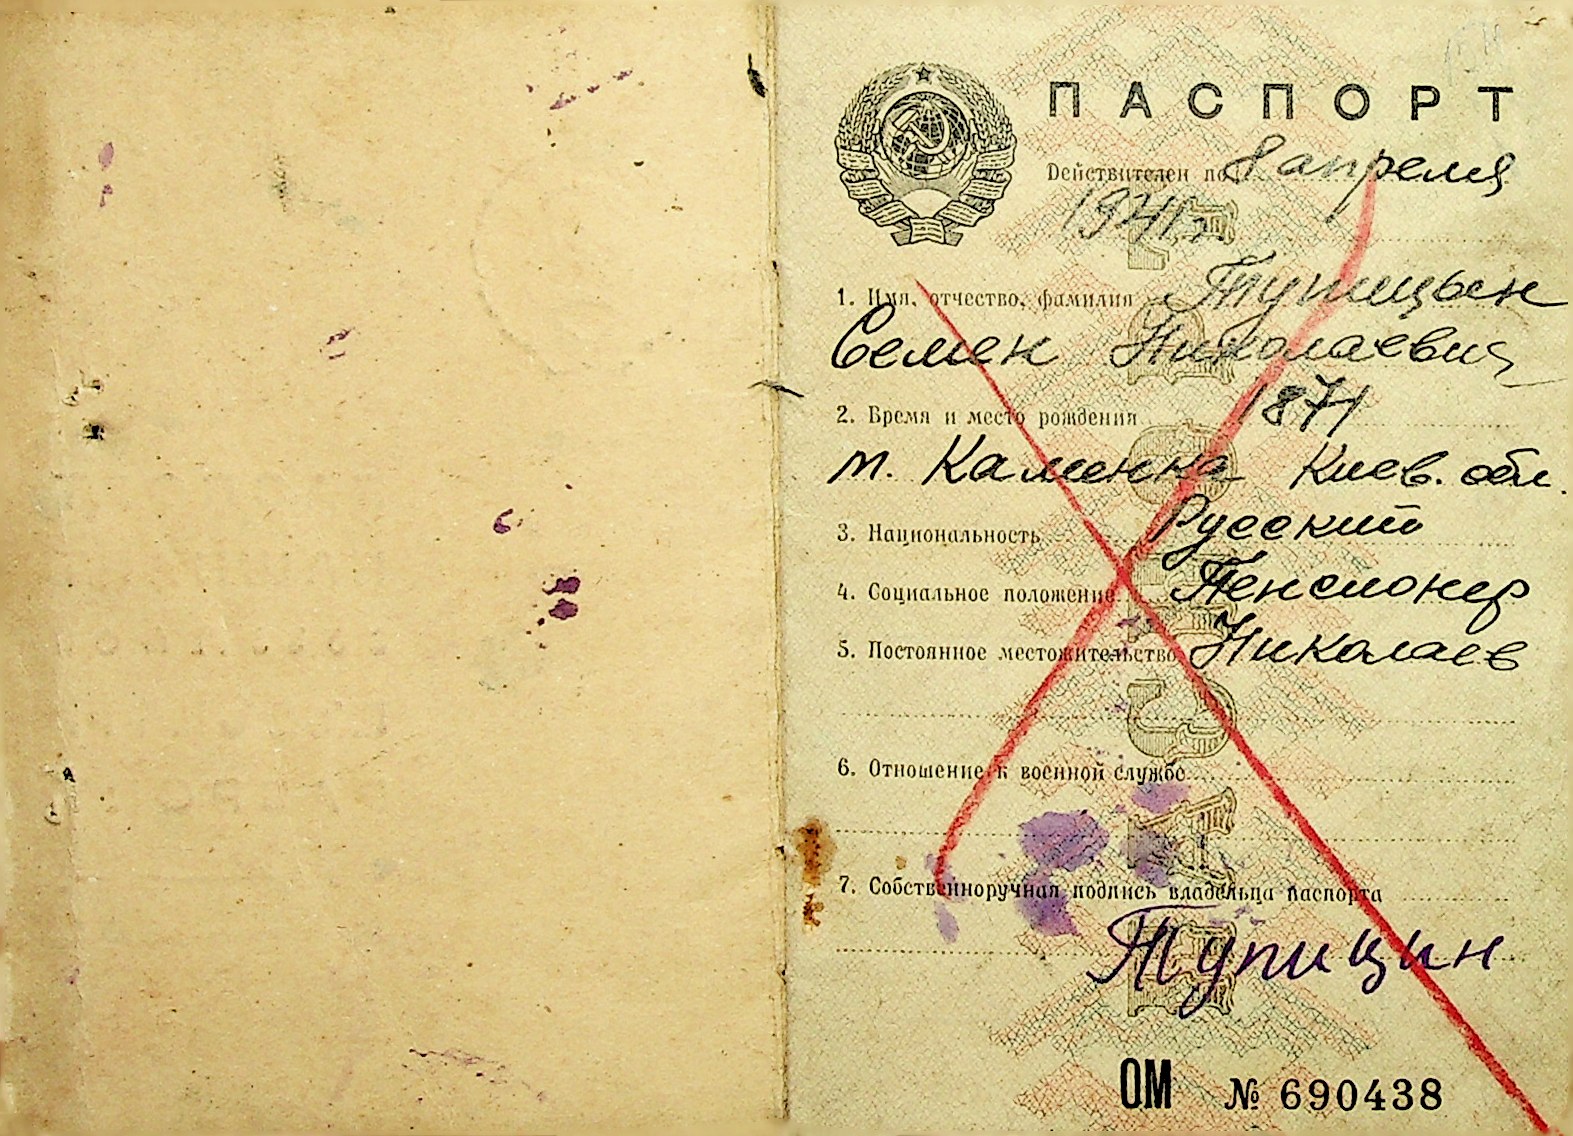 ПАСПОРТ
Действителен по 8 апреля
1941 г.
1. Имя, отчество, фамилия Тупицын
Семен Николаевич
2. Время и место рождения 1871
м. Каменка Киев. обл.
3. Национальность Русский
4. Социальное положение Пенсионер
5. Постоянное местожительство Николаев
6. Отношение к военной службе
7. Собственноручная подпись владельца паспорта
Тупицин
ОМ № 690438